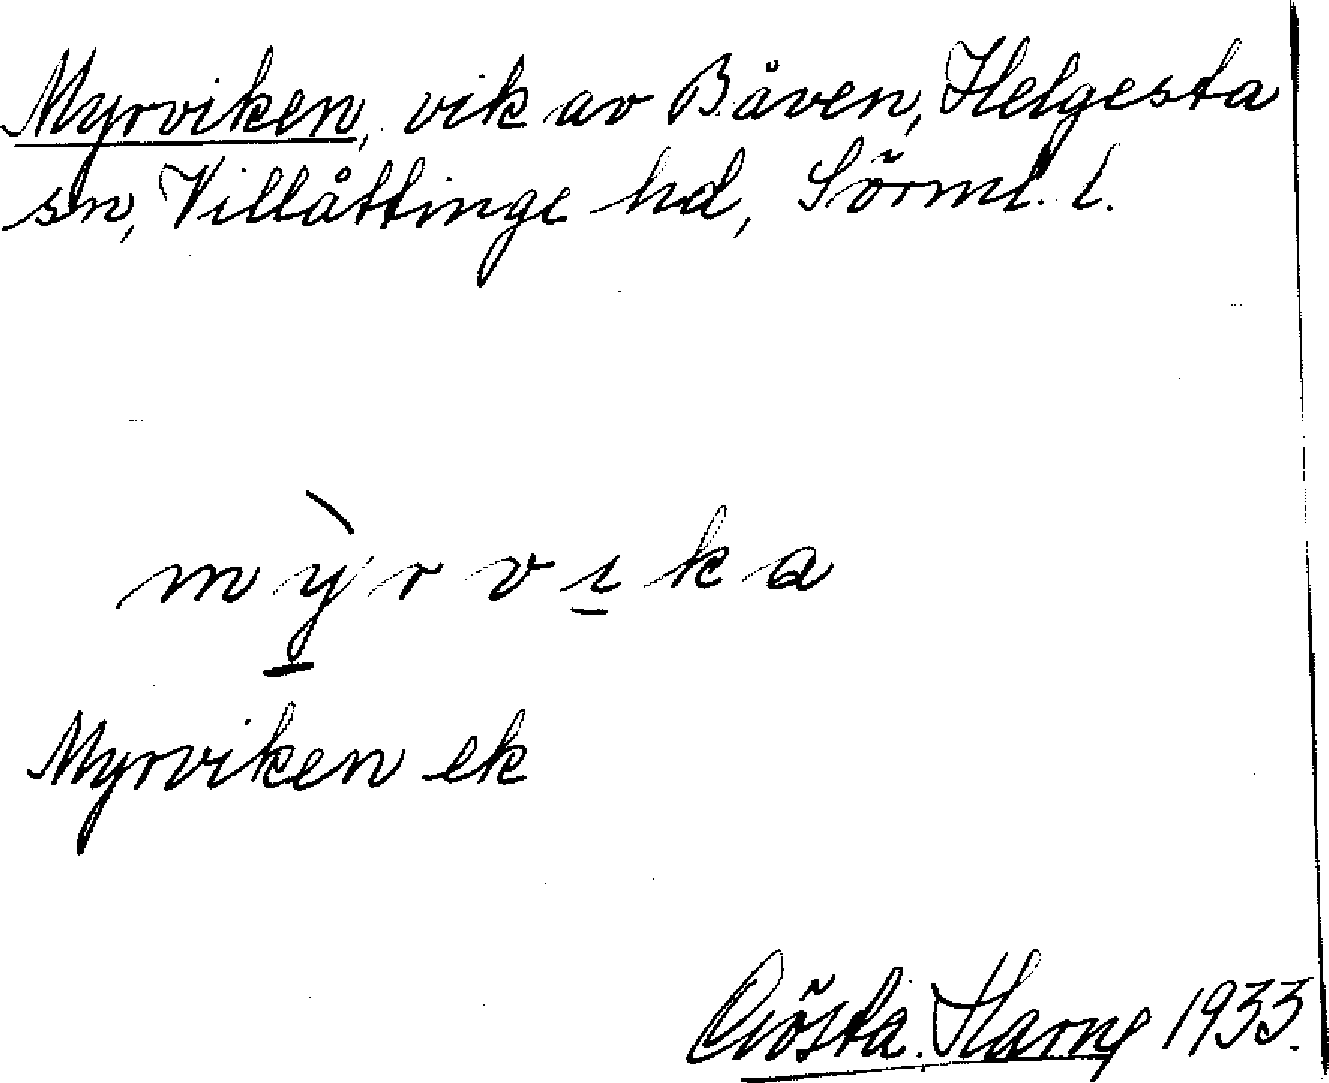 Myrviken, vik av Båven, Helgesta
sn, Villåttinge hd, Sörml. l.
mỳrvika
Myrviken ek
Gösta Harne 1933.